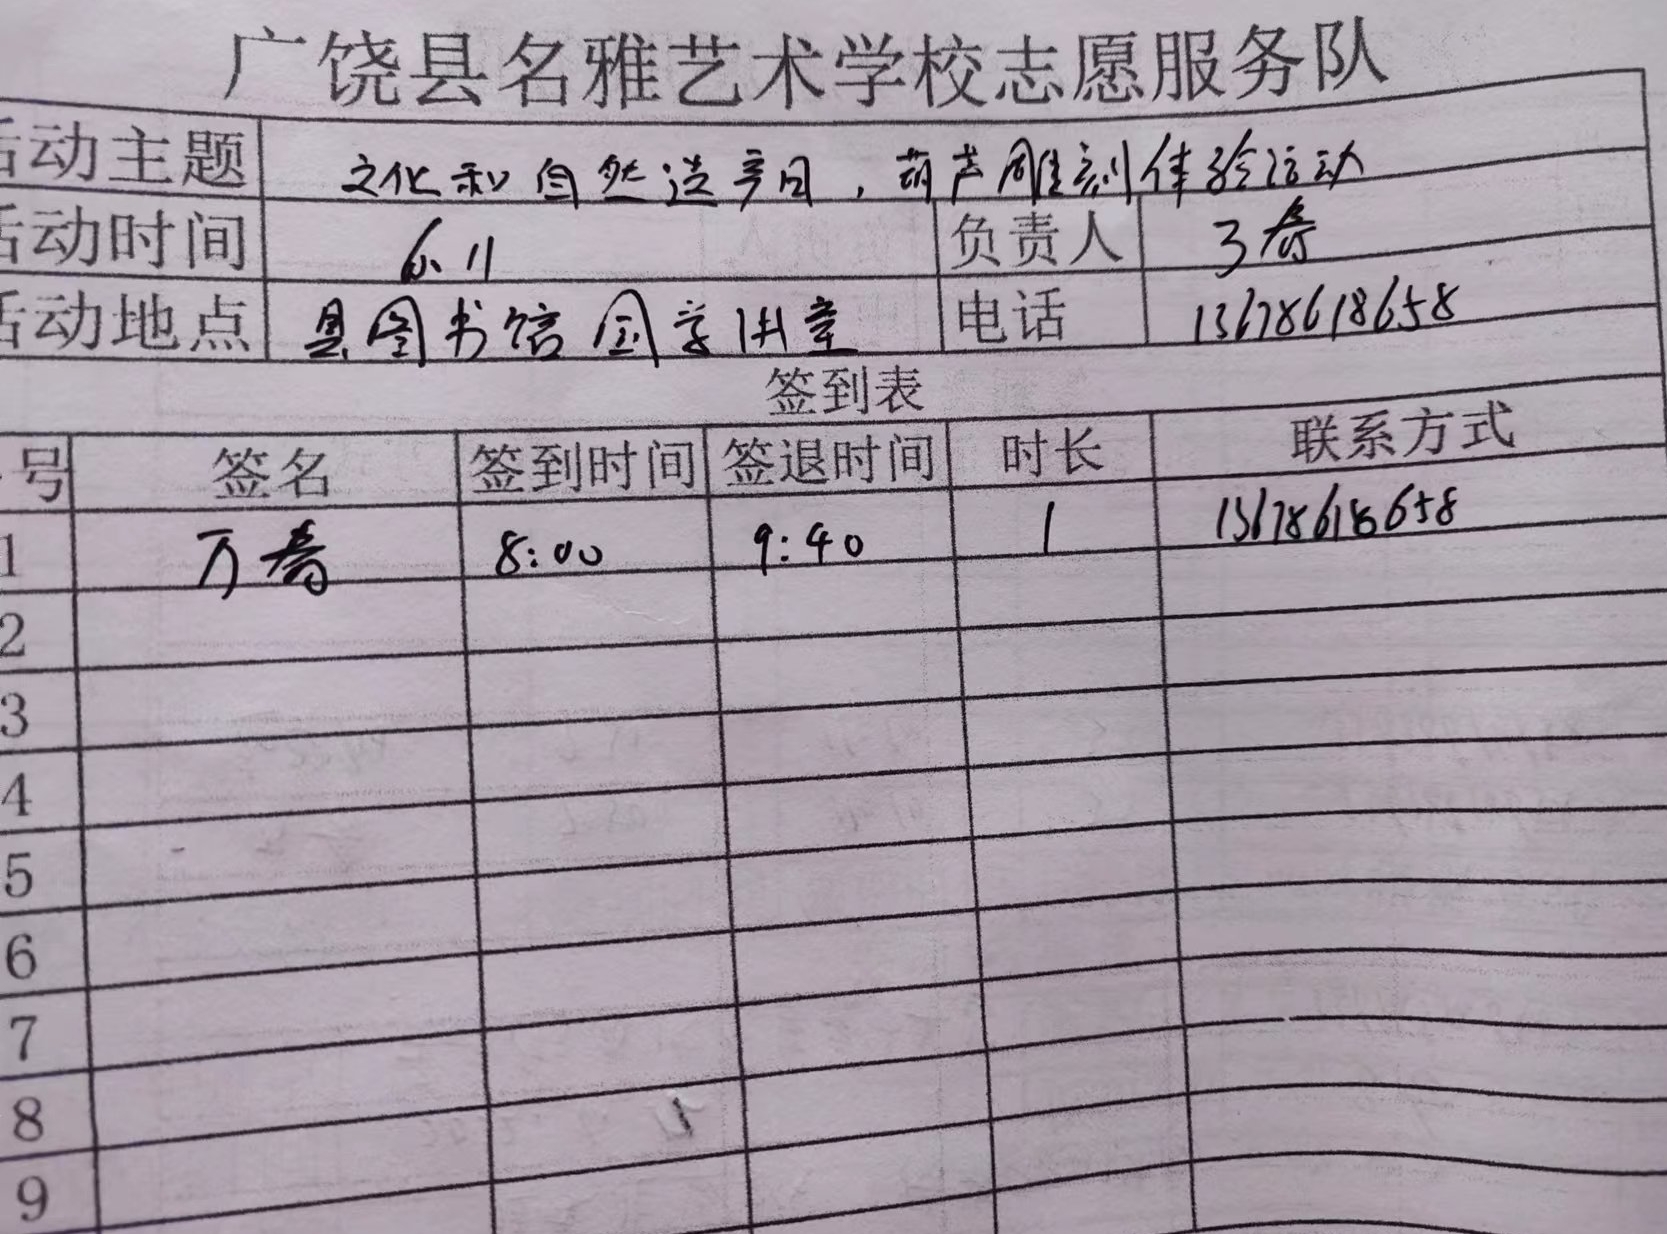 广饶县名雅艺术学校志愿服务队
活动主题 文化和自然遗产日，葫芦雕刻体验活动
活动时间 6.11 负责人
活动地点 县图书馆国学讲堂 电话 13678618658
签到表
号 签名 签到时间 签退时间 时长 联系方式
1 万 8:00 9:40 1 13678618658
2
3
4
5
6
7
8
9